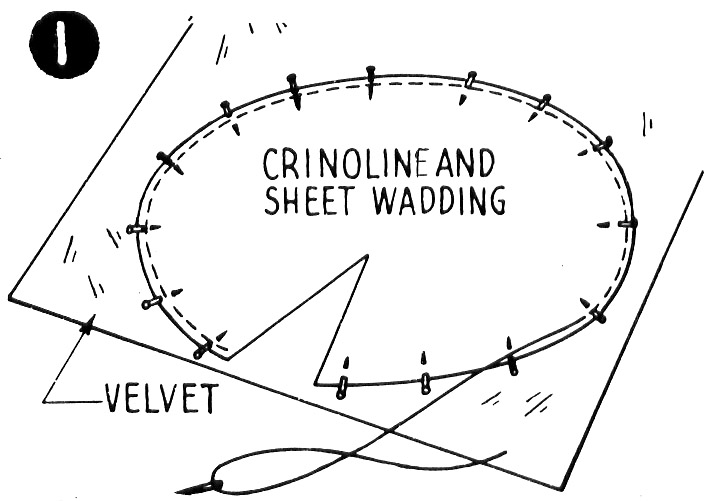 1
CRINOLINE AND
SHEET WADDING
VELVET